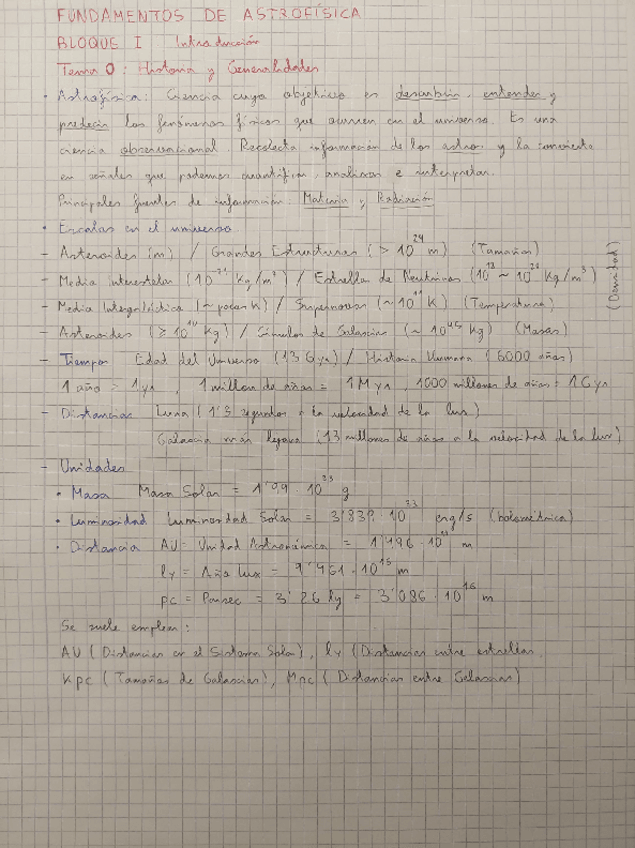 FUNDAMENTOS DE ASTROFÍSICA
BLOQUE I Introducción
Tema 0: Historia y Generalidades
· Astrofísica: Ciencia cuyo objetivo es describir, entender y
predecir los fenómenos físicos que ocurren en el universo. Es una
ciencia observacional. Recolecta información de los astros y la convierte
en señales que podemos cuantificar, analizar e interpretar.
Principales fuentes de información: Materia y Radiación
· Escalas en el universo
- Asteroides (m) / Grandes Estructuras (> 10^24 m) (Tamaños)
- Medio Interestelar (10^-21 Kg/m^3) / Estrellas de Neutrones (10^13 ~ 10^21 Kg/m^3) (Densidad)
- Medio Intergaláctico (~ pocos K) / Supernovas (~ 10^11 K) (Temperatura)
- Asteroides (≥ 10^14 Kg) / Cúmulos de Galaxias (~ 10^45 Kg) (Masas)
- Tiempo Edad del Universo (13 Gyr) / Historia Humana (6000 años)
1 año = 1 yr, 1 millon de años = 1 Myr, 1000 millones de años = 1 Gyr
- Distancias Luna (1'3 segundos a la velocidad de la luz)
Galaxia más lejana (13 millones de años a la velocidad de la luz)
- Unidades
· Masa Masa Solar = 1'99 · 10^33 g
· Luminosidad Luminosidad Solar = 3'839 · 10^33 erg/s (bolométrica)
· Distancia AU = Unidad Astronómica = 1'496 · 10^11 m
ly = Año luz = 9'461 · 10^15 m
pc = Parsec = 3'26 ly = 3'086 · 10^16 m
Se suele emplear:
AU (Distancias en el Sistema Solar), ly (Distancias entre estrellas
Kpc (Tamaños de Galaxias), Mpc (Distancias entre Galaxias)